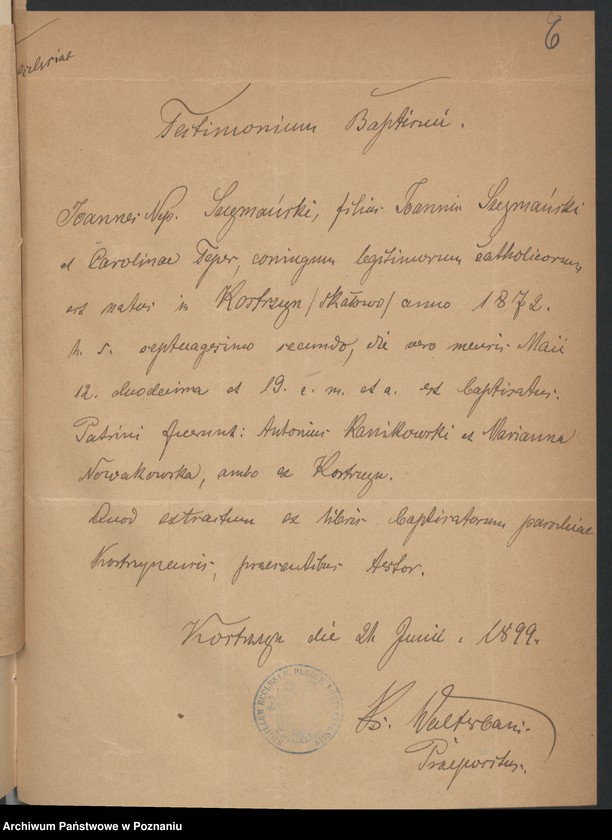 6
Testimonium Baptismi.
Joannes Nep. Szymański, filius Joannis Szymański
et Carolinae Teper, coniugum legitimorum catholicorum
est natus in Kostrzyn /Skałowo/ anno 1872.
h. s. septuagesimo secundo, die vero mensis Maii
12. duodecima et 19. e. m. et a. est baptisatus.
Patrini fuerunt: Antonius Kanikowski et Marianna
Nowakowska, ambo ex Kostrzyn.
Quod extractum ex libris baptisatorum parochiae
Kostrzynensis, praesentibus testor.
Kostrzyn die 21 Junii 1899.
SIGILLUM ECCLESIAE PAROCH
Ks.
Praepositus.
Archiwum Państwowe w Poznaniu